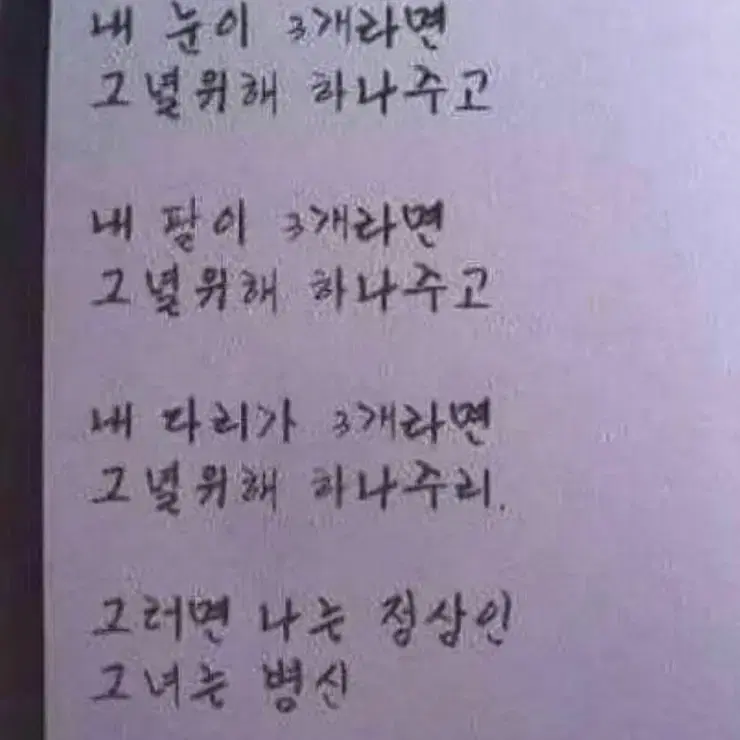 내 눈이 3개라면
그녈위해 하나주고
내 팔이 3개라면
그녈위해 하나주고
내 다리가 3개라면
그녈위해 하나주리.
그러면 나는 정상인
그녀는 병신